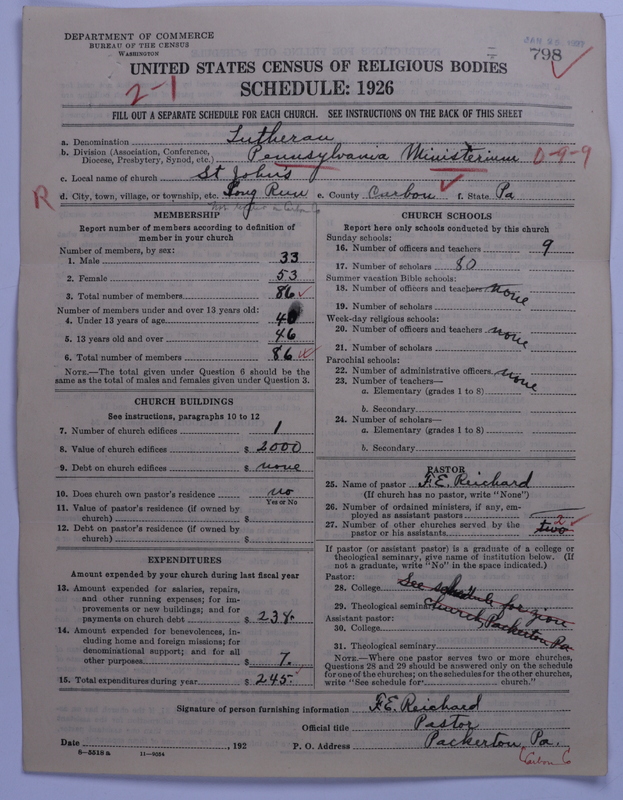 DEPARTMENT OF COMMERCE
BUREAU OF THE CENSUS
WASHINGTON
JAN 1927
798
UNITED STATES CENSUS OF RELIGIOUS BODIES
2-1
SCHEDULE: 1926
FILL OUT A SEPARATE SCHEDULE FOR EACH CHURCH. SEE INSTRUCTIONS ON THE BACK OF THIS SHEET
a. Denomination Lutheran
b. Division (Association, Conference, Diocese, Presbytery, Synod, etc.) Pennsylvania Ministerium 0-9-9
c. Local name of church St John's
R d. City, town, village, or township, etc. Long Run e. County Carbon f. State Pa
MEMBERSHIP
Report number of members according to definition of
member in your church
Number of members, by sex:
1. Male 33
2. Female 53
3. Total number of members 86
Number of members under and over 13 years old:
4. Under 13 years of age 40
5. 13 years old and over 46
6. Total number of members 86
NOTE.—The total given under Question 6 should be
same as the total of males and females given under Question 3.
CHURCH BUILDINGS
See instructions, paragraphs 10 to 12
7. Number of church edifices 1
8. Value of church edifices $ 2000
9. Debt on church edifices $ none
10. Does church own pastor's residence no
Yes or No
11. Value of pastor's residence (if owned by
church) $
12. Debt on pastor's residence (if owned by
church) $
EXPENDITURES
Amount expended by your church during last fiscal year
13. Amount expended for salaries, repairs,
and other running expenses; for im-
provements or new buildings; and for
payments on church debt $ 238.
14. Amount expended for benevolences, in-
cluding home and foreign missions; for
denominational support; and for all
other purposes $ 7.
15. Total expenditures during year $ 245.
CHURCH SCHOOLS
Report here only schools conducted by this church
Sunday schools:
16. Number of officers and teachers 9
17. Number of scholars 80
Summer vacation Bible schools:
18. Number of officers and teachers none
19. Number of scholars
Week-day religious schools:
20. Number of officers and teachers none
21. Number of scholars
Parochial schools:
22. Number of administrative officers none
23. Number of teachers—
a. Elementary (grades 1 to 8)
b. Secondary
24. Number of scholars—
a. Elementary (grades 1 to 8)
b. Secondary
PASTOR
25. Name of pastor F.E. Reichard
(If church has no pastor, write "None")
26. Number of ordained ministers, if any, em-
ployed as assistant pastors
27. Number of other churches served by the
pastor or his assistants two 2
If pastor (or assistant pastor) is a graduate of a college or
theological seminary, give name of institution below. (If
not a graduate, write "No" in the space indicated.)
Pastor:
28. College See schedule for Zion
29. Theological seminary Church, Packerton Pa
Assistant pastor:
30. College
31. Theological seminary
NOTE.—Where one pastor serves two or more churches,
Questions 28 and 29 should be answered only on the schedule
for one of the churches; on the schedules for the other churches,
write "See schedule for church."
Signature of person furnishing information F.E. Reichard
Official title Pastor
Date , 192 P. O. Address Packerton, Pa.
Carbon Co
8—5518 a 11—9554